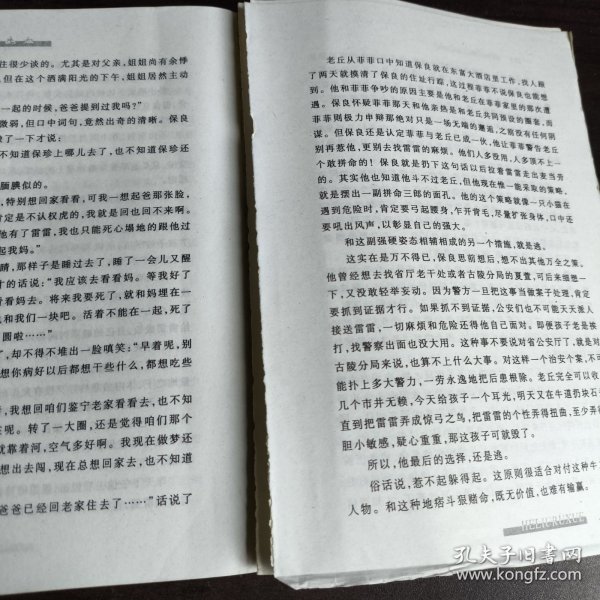 往很少谈的。尤其是对父亲,姐姐尚有余悸
但在这个洒满阳光的下午,姐姐居然主动
一起的时候,爸爸提到过我吗?”
微弱,但口中词句,竟然出奇的清晰。保良
了一下才说:
不知道保珍上哪儿去了,也不知道保珍还
腼腆似的。
,特别想回家看看,可我一想起爸那张脸,
肯定是不认权虎的,我就是回也回不来啊。
他有了雷雷,我也只能死心塌地的跟他过
起我妈。”
睛,那样子是睡过去了,睡了一会儿又醒
才的话说:“我应该去看看妈。等我好了
看妈去。将来我要死了,就和妈埋在一
和我们一块吧。活着不能在一起,死了
圆啦……”
了,却不得不堆出一脸嗔笑:“早着呢,别
想你病好以后都想干些什么,都想吃些
,我想回咱们鉴宁老家看看去,也不知
呢。转了一大圈,还是觉得咱们那个
就靠着河,空气多好啊。我现在做梦还
想出去闯,现在总想回家去,也不知道
爸爸已经回老家住去了……”话说了
老丘从菲菲口中知道保良就在东富大酒店里工作,找人跟
了两天就摸清了保良的住址行踪,这过程菲菲不说保良也能想
到。他和菲菲争吵的原因主要是他和老丘在菲菲家里的那次遭
遇。保良怀疑菲菲那天和他亲热是和老丘共同预设的圈套,而
菲菲则极力申辩那绝对只是一场无端的邂逅,之前没有任何阴
谋。但保良还是认定菲菲与老丘已成一伙,他让菲菲警告老丘
别再惹他,更别去找雷雷的麻烦。他们人多没用,人多顶不上一
个敢拼命的!保良就是扔下这句话以后拉着雷雷走出麦当劳
的。其实他也知道他斗不过老丘,但他现在惟一能采取的策略,
就是摆出一副拼命三郎的面孔。他的这个策略就像一只小猫在
遇到危险时,肯定要弓起腰身,乍开脊毛,尽量扩张身体,口中还
要吼出风声,以彰显自己的强大。
和这副强硬姿态相辅相成的另一个措施,就是逃。
这实在是万不得已,保良思前想后,想不出其他万全之策。
他曾经想去找省厅老干处或者古陵分局的夏萱,可后来细想一
下,又没敢轻举妄动。因为警方一旦把这事当做案子处理,肯定
要抓到证据才行。如果抓不到证据,公安们也不可能天天派人
接送雷雷,一切麻烦和危险还得他自己面对。即便孩子老是挨
打,找警察出面也没大用。这种事不要说对省公安厅了,就是对
古陵分局来说,也算不上什么大事。对这样一个治安个案,不可
能扑上多大警力,一劳永逸地把后患根除。老丘完全可以收
几个市井无赖,今天给孩子一个耳光,明天又在半道扔块石
直到把雷雷弄成惊弓之鸟,把雷雷的个性弄得扭曲,至少弄
胆小敏感,疑心重重,那这孩子可就毁了。
所以,他最后的选择,还是逃。
俗话说,惹不起躲得起。这原则很适合对付这种牛
人物。和这种地痞斗狠赌命,既无价值,也难有输赢。
孔夫子旧书网
www.kongfz.com